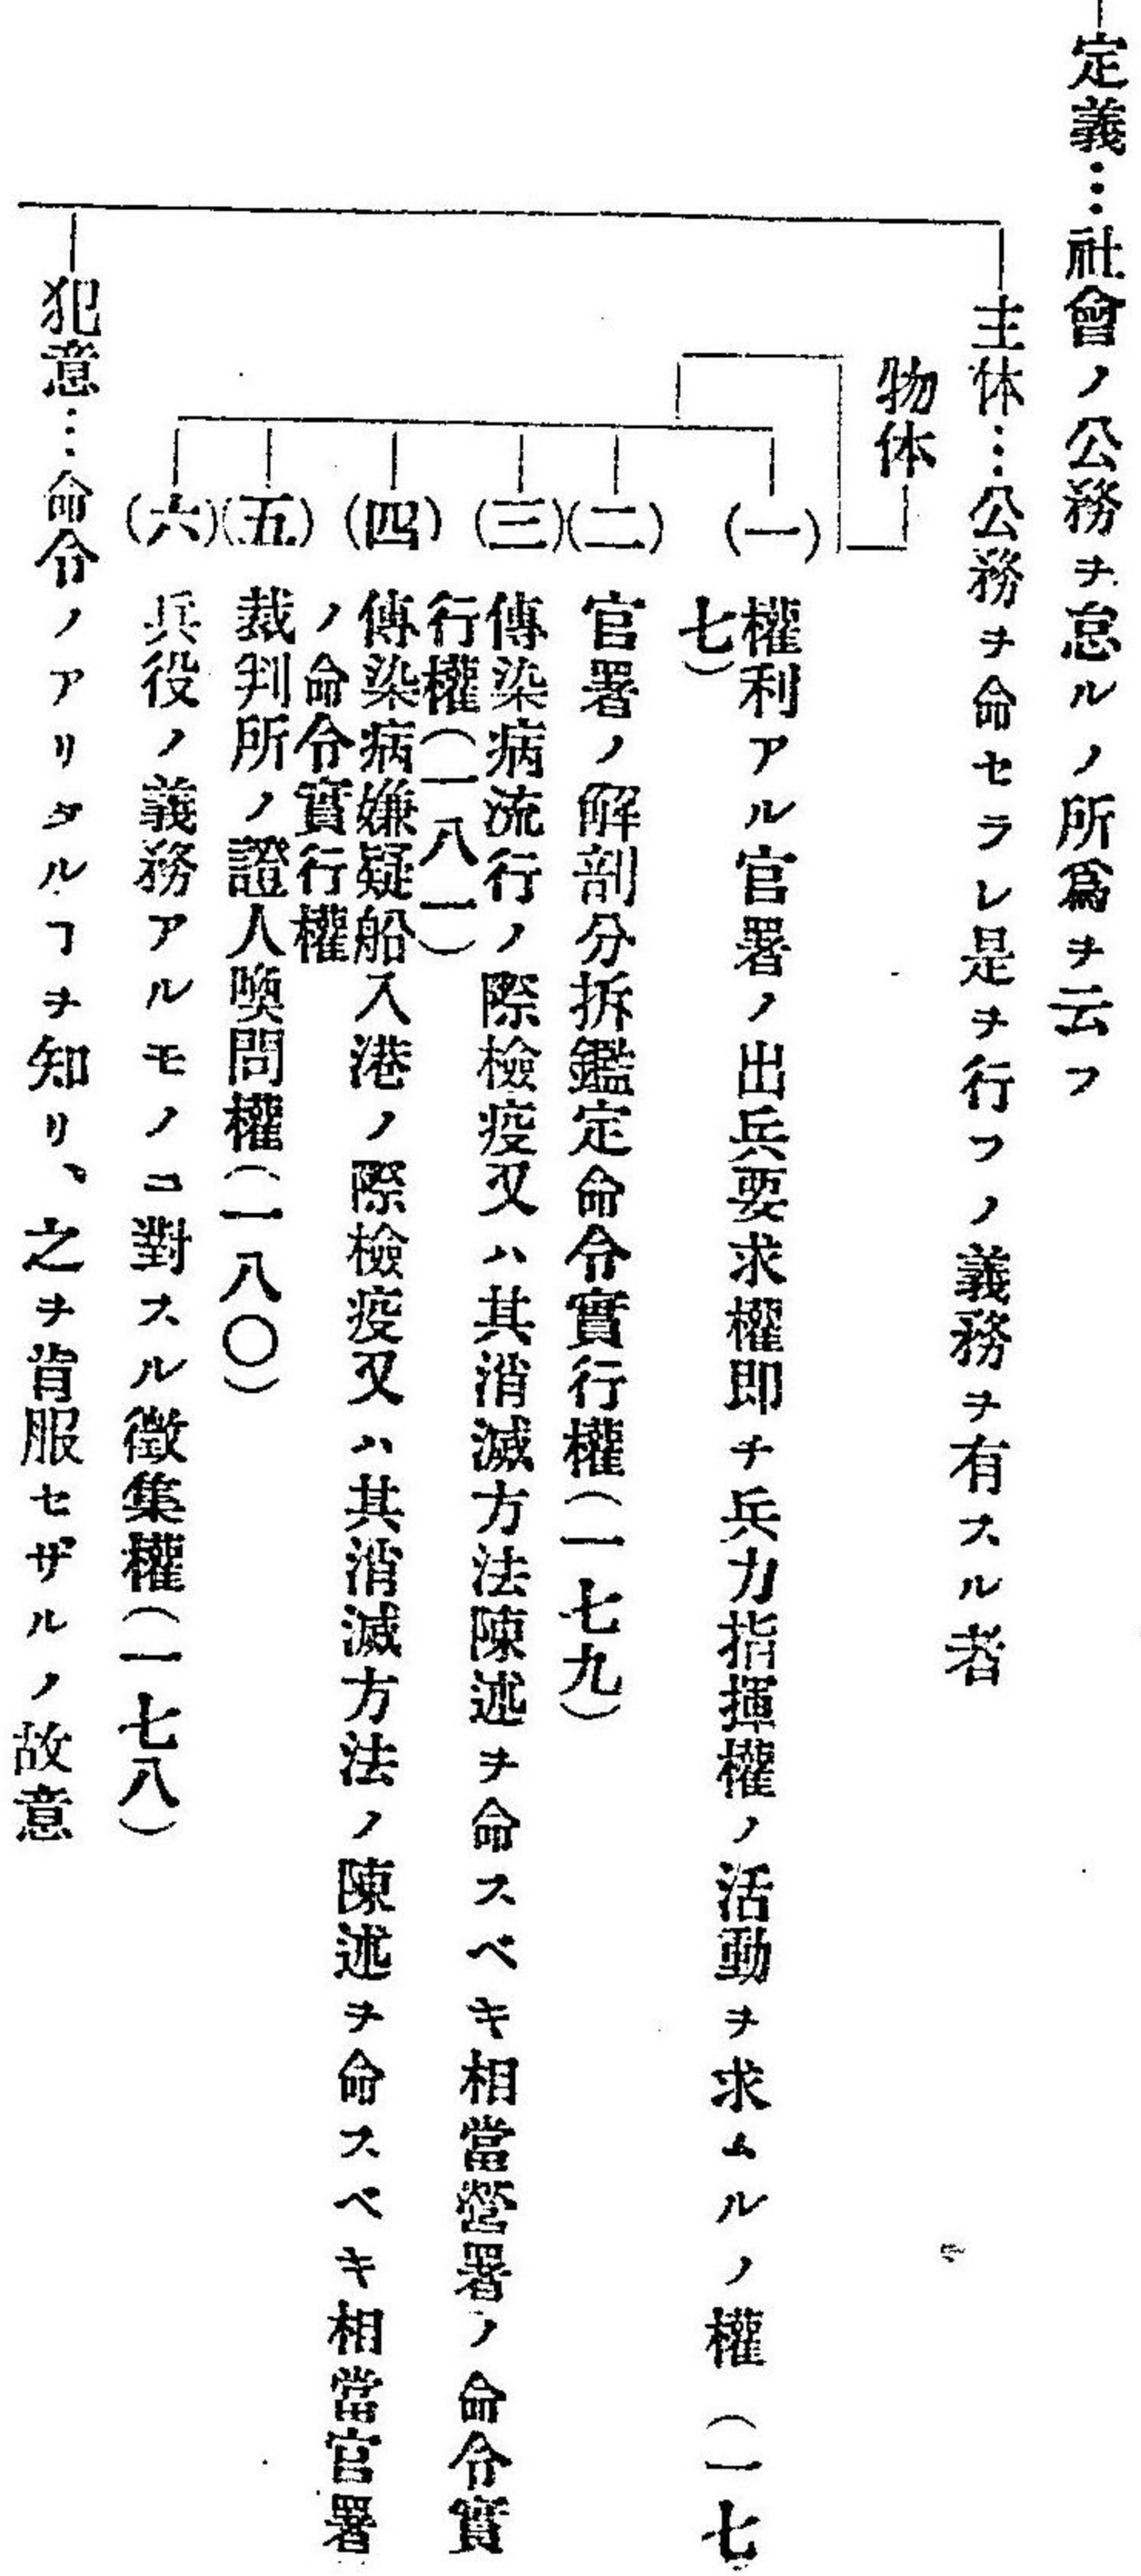 定義…社會ノ公務ヲ怠ルノ所爲ヲ云フ
主体…公務ヲ命セラレ是ヲ行フノ義務ヲ有スル者
物体
(一)權利アル官署ノ出兵要求權即チ兵力指揮權ノ活動ヲ求ムルノ權(一七
七)
(二)官署ノ解剖分拆鑑定命令實行權(一七九)
(三)傳染病流行ノ際檢疫又ハ其消滅方法陳述ヲ命スベキ相當營署ノ命令實
行權(一八一)
(四)傳染病嫌疑船入港ノ際檢疫又ハ其消滅方法ノ陳述ヲ命スベキ相當官署
ノ命令實行權
(五)裁判所ノ證人喚問權(一八〇)
(六)兵役ノ義務アルモノニ對スル徵集權(一七八)
犯意…命令ノアリタルヿヲ知リ、之ヲ肯服セザルノ故意